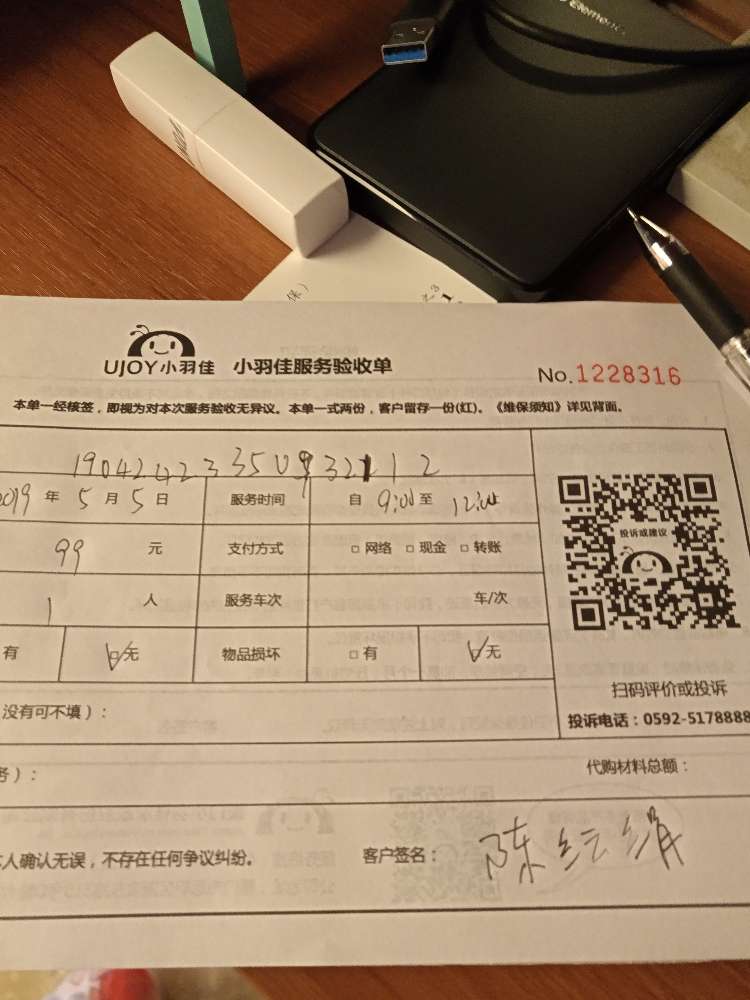 Element
保）
UJOY小羽佳 小羽佳服务验收单 No.1228316
本单一经核签，即视为对本次服务验收无异议。本单一式两份，客户留存一份(红)。《维保须知》详见背面。
2019 年 5 月 5 日 服务时间 自 9:00 至 12:00
99 元 支付方式 □ 网络 □ 现金 □ 转账
投诉或建议
1 人 服务车次 车/次
有 □无 物品损坏 □ 有 □无
扫码评价或投诉
没有可不填）：
投诉电话：0592-5178888
务）： 代购材料总额：
本人确认无误，不存在任何争议纠纷。 客户签名： 陈